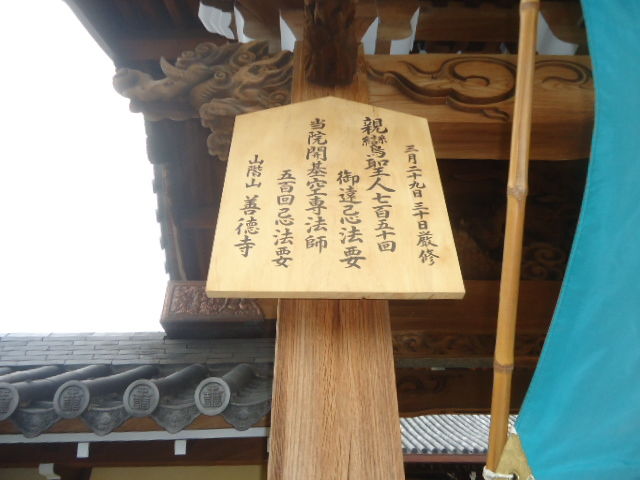 三月二十九日三十日厳修
親鸞聖人七百五十回
御遠忌法要
当院開基空専法師
五百回忌法要
山階山 善德寺